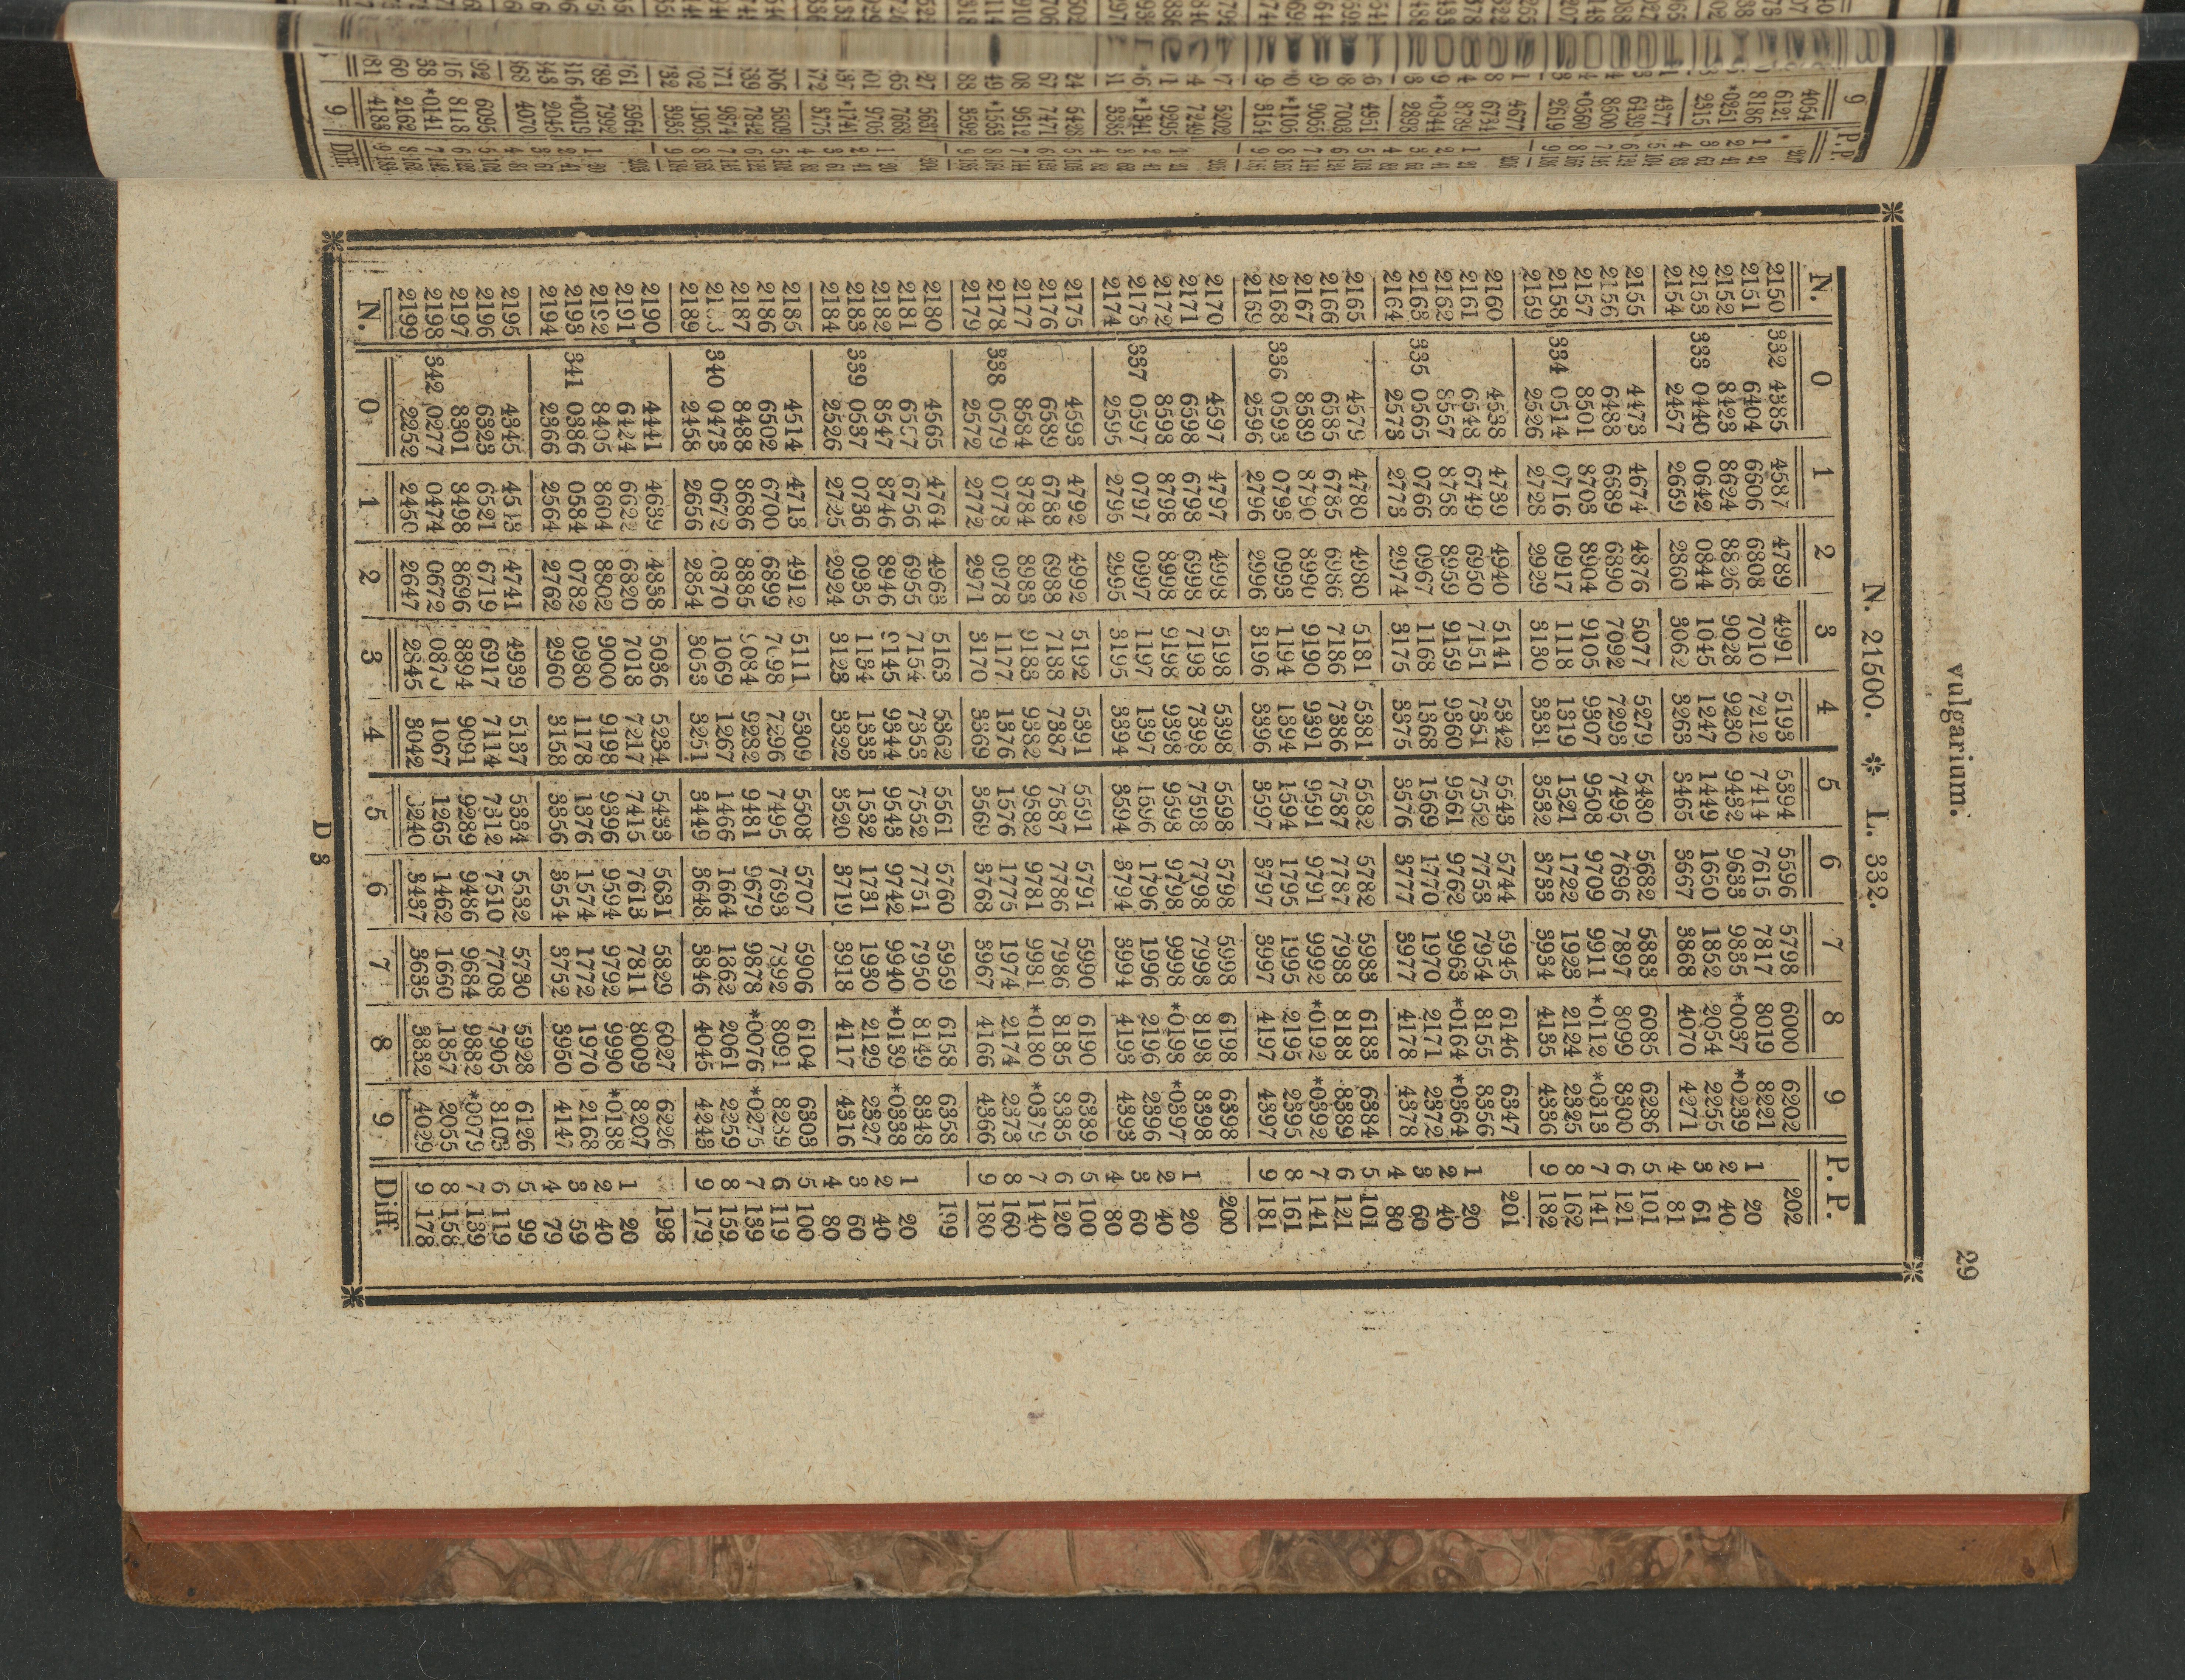 vulgarium. 29
N. 21500. * L. 332.
N. 0 1 2 3 4 5 6 7 8 9 P. P.
2150 332 4385 4587 4789 4991 5193 5394 5596 5798 6000 6202 202
2151 6404 6606 6808 7010 7212 7414 7615 7817 8019 8221 1 20
2152 8423 8624 8826 9028 9230 9432 9633 9835 *0037 *0239 2 40
2153 333 0440 0642 0844 1045 1247 1449 1650 1852 2054 2255 3 61
2154 2457 2659 2860 3062 3263 3465 3667 3868 4070 4271 4 81
2155 4473 4674 4876 5077 5279 5480 5682 5883 6085 6286 5 101
2156 6488 6689 6890 7092 7293 7495 7696 7897 8099 8300 6 121
2157 8501 8703 8904 9105 9307 9508 9709 9911 *0112 *0313 7 141
2158 334 0514 0716 0917 1118 1319 1521 1722 1923 2124 2325 8 162
2159 2526 2728 2929 3130 3331 3532 3733 3934 4135 4336 9 182
2160 4538 4739 4940 5141 5342 5543 5744 5945 6146 6347 201
2161 6548 6749 6950 7151 7351 7552 7753 7954 8155 8356 1 20
2162 8557 8758 8959 9159 9360 9561 9762 9963 *0164 *0364 2 40
2163 335 0565 0766 0967 1168 1368 1569 1770 1970 2171 2372 3 60
2164 2573 2773 2974 3175 3375 3576 3777 3977 4178 4378 4 80
2165 4579 4780 4980 5181 5381 5582 5782 5983 6183 6384 5 101
2166 6585 6785 6986 7186 7386 7587 7787 7988 8188 8389 6 121
2167 8589 8790 8990 9190 9391 9591 9791 9992 *0192 *0392 7 141
2168 336 0593 0793 0993 1194 1394 1594 1795 1995 2195 2395 8 161
2169 2596 2796 2996 3196 3396 3597 3797 3997 4197 4397 9 181
2170 4597 4797 4998 5198 5398 5598 5798 5998 6198 6398 200
2171 6598 6798 6998 7198 7398 7598 7798 7998 8198 8398 1 20
2172 8598 8798 8998 9198 9398 9598 9798 9998 *0198 *0397 2 40
2173 337 0597 0797 0997 1197 1397 1596 1796 1996 2196 2396 3 60
2174 2595 2795 2995 3195 3394 3594 3794 3994 4193 4393 4 80
2175 4593 4792 4992 5192 5391 5591 5791 5990 6190 6389 5 100
2176 6589 6788 6988 7188 7387 7587 7786 7986 8185 8385 6 120
2177 8584 8784 8983 9183 9382 9582 9781 9981 *0180 *0379 7 140
2178 338 0579 0778 0978 1177 1376 1576 1775 1974 2174 2373 8 160
2179 2572 2772 2971 3170 3369 3569 3768 3967 4166 4366 9 180
2180 4565 4764 4963 5163 5362 5561 5760 5959 6158 6358 199
2181 6557 6756 6955 7154 7353 7552 7751 7950 8149 8348 1 20
2182 8547 8746 8946 9145 9344 9543 9742 9940 *0139 *0338 2 40
2183 339 0537 0736 0935 1134 1333 1532 1731 1930 2129 2327 3 60
2184 2526 2725 2924 3123 3322 3520 3719 3918 4117 4316 4 80
2185 4514 4713 4912 5111 5309 5508 5707 5906 6104 6303 5 100
2186 6502 6700 6899 7098 7296 7495 7693 7892 8091 8239 6 119
2187 8488 8686 8885 9084 9282 9481 9679 9878 *0076 *0275 7 139
2188 340 0473 0672 0870 1069 1267 1466 1664 1862 2061 2259 8 159
2189 2458 2656 2854 3053 3251 3449 3648 3846 4045 4243 9 179
2190 4441 4639 4838 5036 5234 5433 5631 5829 6027 6226 198
2191 6424 6622 6820 7018 7217 7415 7613 7811 8009 8207 1 20
2192 8405 8604 8802 9000 9198 9396 9594 9792 9990 *0188 2 40
2193 341 0386 0584 0782 0980 1178 1376 1574 1772 1970 2168 3 59
2194 2366 2564 2762 2960 3158 3356 3554 3752 3950 4147 4 79
2195 4345 4543 4741 4939 5137 5334 5532 5730 5928 6126 5 99
2196 6323 6521 6719 6917 7114 7312 7510 7708 7905 8103 6 119
2197 8301 8498 8696 8894 9091 9289 9486 9684 9882 *0079 7 139
2198 342 0277 0474 0672 0870 1067 1265 1462 1660 1857 2055 8 158
2199 2252 2450 2647 2845 3042 3240 3437 3635 3832 4029 9 178
N. 0 1 2 3 4 5 6 7 8 9 Diff.
D 3